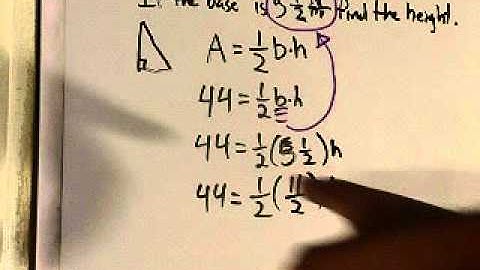 If the base is 5 1/2 find the height.
A = 1/2 b·h
44 = 1/2 b·h
44 = 1/2 (5 1/2) h
44 = 1/2 (11/2)